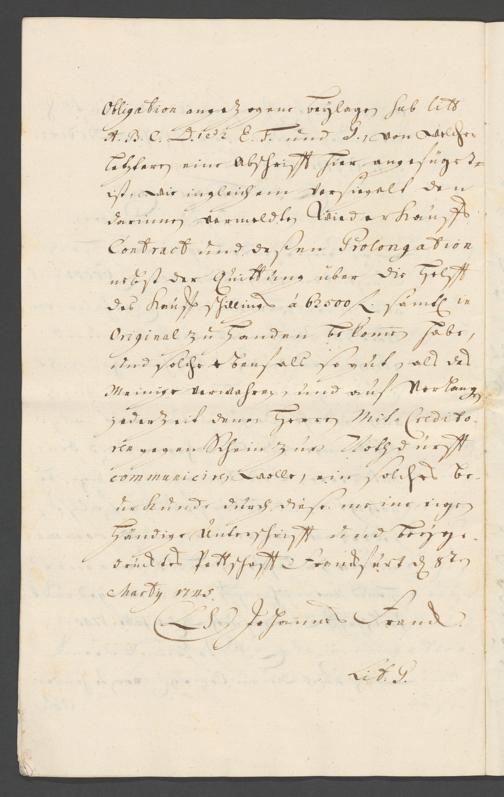 Obligation angezogene beylagen sub litt
A. B. C. D. E. F. und G., von welcher
letzteren eine Abschrifft hier angefüget
ist, wie ingleichem versiegelt den
darinnen vermeldten Wiederkauffs
Contract und deßen Prolongation
nebst der Quittung über die Helfft
des Kauffschillings á 62500 f. sämtl. in
Original zu Handen bekommen habe,
und solche ebenfalls so gut, als das
Meinige verwahren, und auf Verlangen
jederzeit denen Herren Mit-Credito-
ren gegen Schein zur Nothdurfft
communiciren wolle, ein solches be-
urkunde durch diese meine eigen
händige Unterschrifft und beyge-
drucktes Pettschafft Franckfurt d 8ten
Marty 1745.
Johannes Franck
Lit. G.